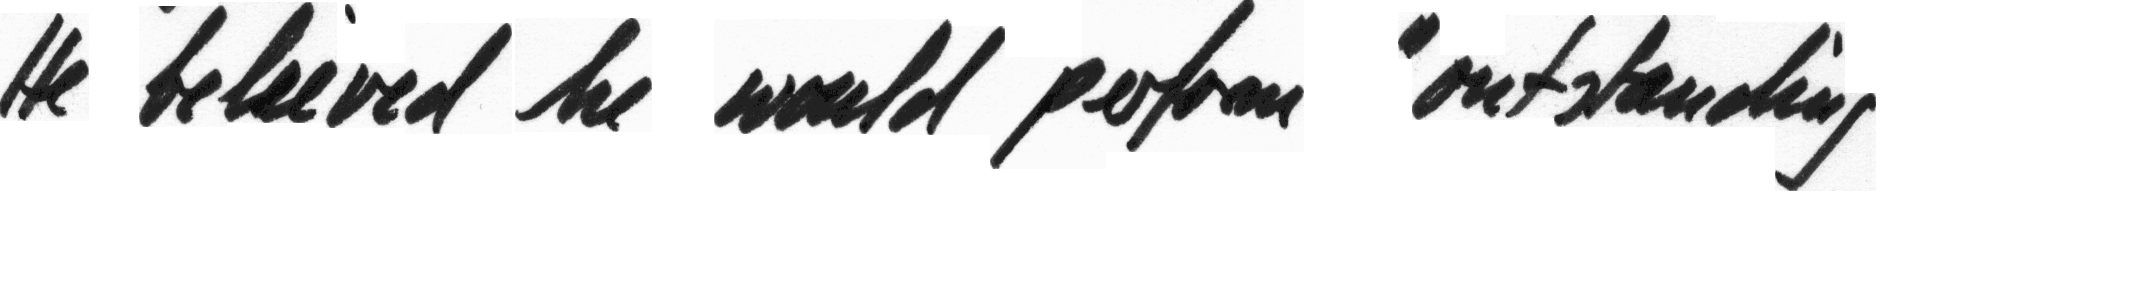 He believed he would perform "outstanding